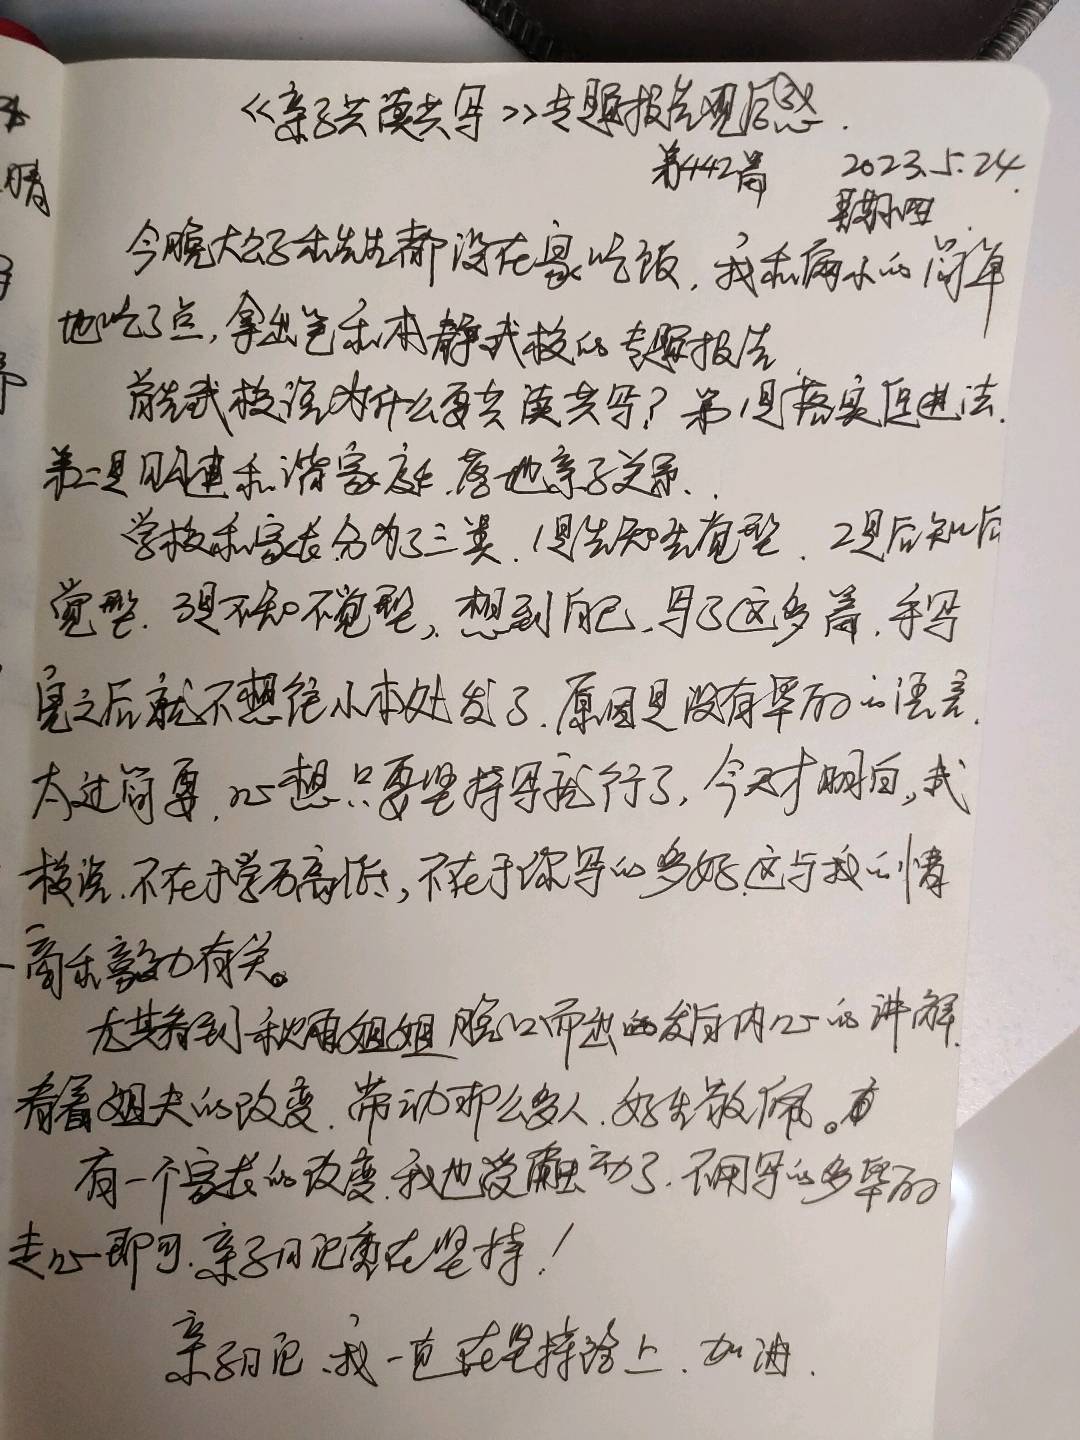 《亲子共读共写》专题报告观后感.
第442篇 2023.5.24.
星期四
今晚大公子和先生都没在家吃饭,我和两小的简单
地吃了点,拿出笔和本静武校的专题报告
首先武校说为什么要共读共写?第1是落实促进法.
第二是构建和谐家庭.落地亲子关系.
学校和家长分为了三类.1是先知先觉型.2是后知后
觉型.3是不知不觉型,想到自己.写了这多篇.手写
完之后就不想往小本处发了.原因是没有华丽的语言.
太过简要.心想只要坚持写就行了,今天才明白,武
校说.不在于学历高低,不在于你写的多好.这与我的情
商和毅力有关。
尤其看到秋雨姐姐脱口而出的发自内心的讲解.
看着姐夫的改变.带动那么多人.好生敬佩。
有一个家长的改变.我也受触动了.不用写的多华丽
走心即可.亲子日记贵在坚持!
亲子日记.我一直在坚持路上.加油.